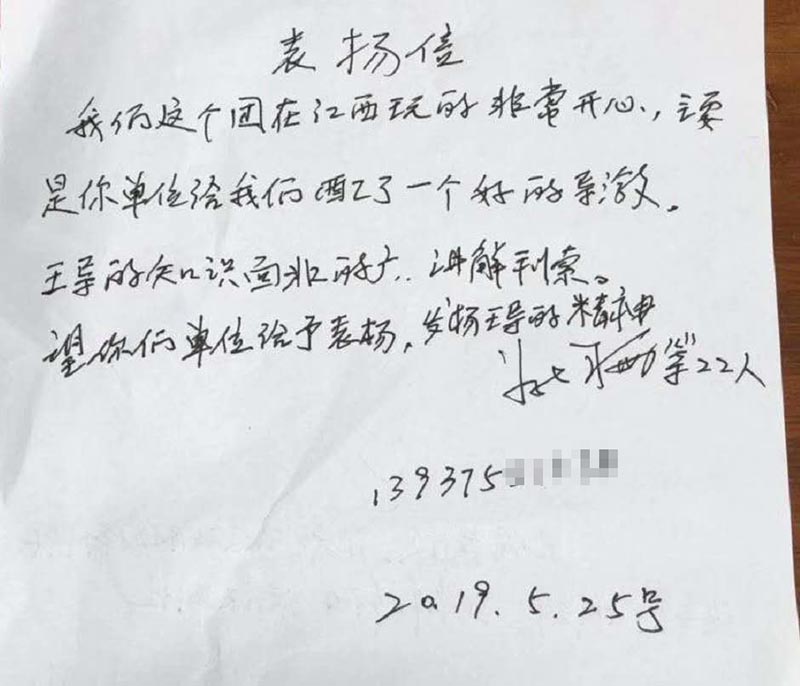 表扬信
我们这个团在江西玩的非常开心，主要
是你单位给我们配了一个好的导游。
王导的知识面非的广.. 讲解利索。
望你们单位给予表扬，发扬王导的精神
等22人
139375
2019.5.25号